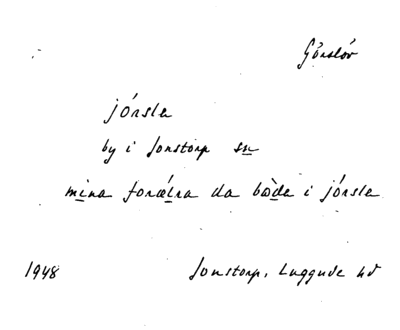 Görslöv
jórsle
by i Jonstorp sn
mina forælra da bode i jórsle
1948 Jonstorp, Luggude hd